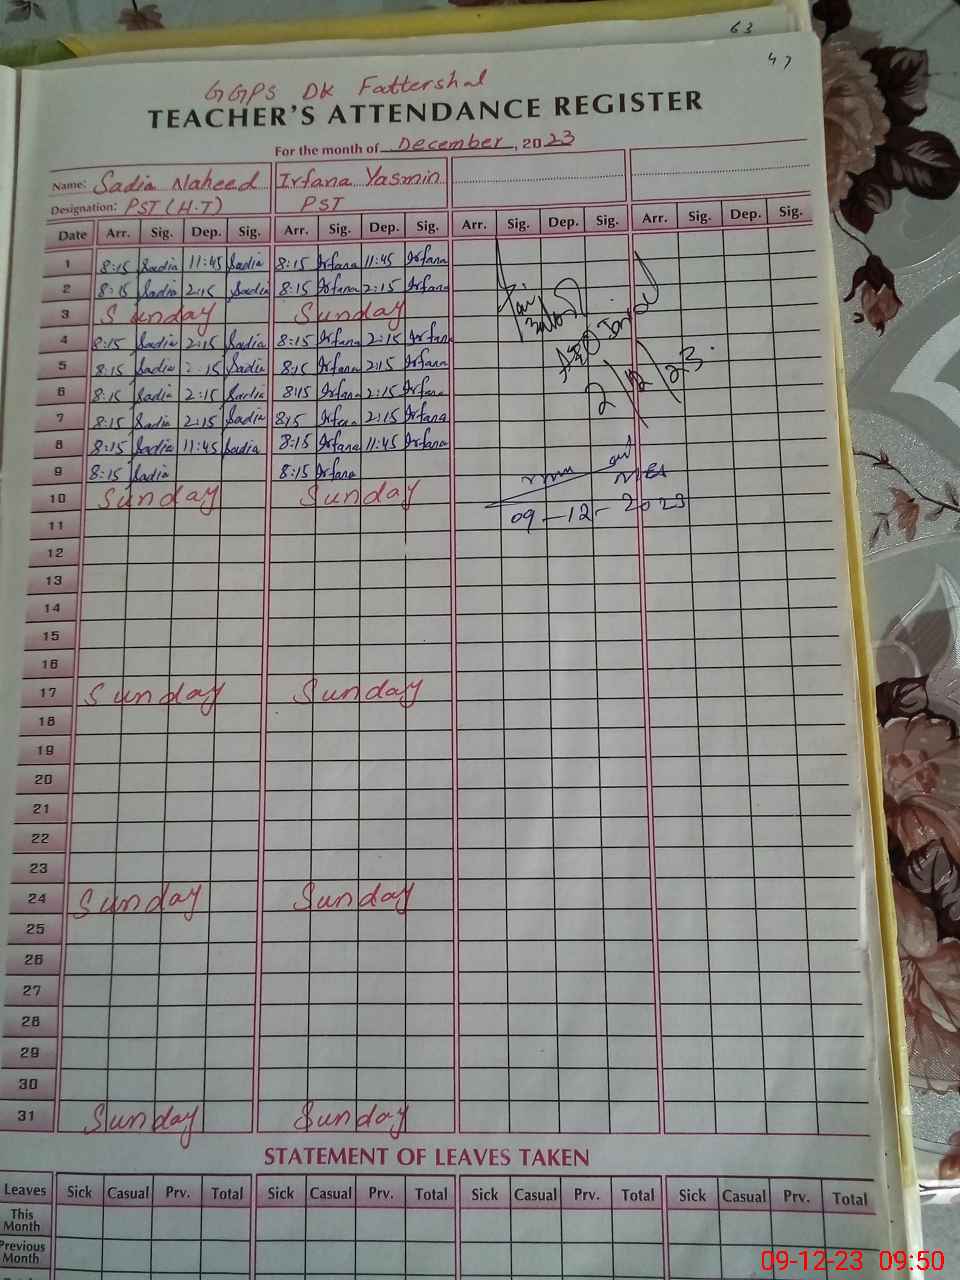 63
47
GGPS DK Fattershal
TEACHER'S ATTENDANCE REGISTER
For the month of December, 2023
Name: Sadia Naheed Irfana Yasmin
Designation: PST (H.T) PST
Date Arr. Sig. Dep. Sig. Arr. Sig. Dep. Sig. Arr. Sig. Dep. Sig. Arr. Sig. Dep. Sig.
1 8:15 Sadia 11:45 Sadia 8:15 Irfana 11:45 Irfana
2 8:15 Sadia 2:15 Sadia 8:15 Irfana 2:15 Irfana
3 Sunday Sunday
4 8:15 Sadia 2:15 Sadia 8:15 Irfana 2:15 Irfana
5 8:15 Sadia 2:15 Sadia 8:15 Irfana 2:15 Irfana
6 8:15 Sadia 2:15 Sadia 8:15 Irfana 2:15 Irfana
7 8:15 Sadia 2:15 Sadia 8:15 Irfana 2:15 Irfana
8 8:15 Sadia 11:45 Sadia 8:15 Irfana 11:45 Irfana
9 8:15 Sadia 8:15 Irfana
10 Sunday Sunday
2/12/23.
09-12-2023
11
12
13
14
15
16
17 Sunday Sunday
18
19
20
21
22
23
24 Sunday Sunday
25
26
27
28
29
30
31 Sunday Sunday
STATEMENT OF LEAVES TAKEN
Leaves Sick Casual Prv. Total Sick Casual Prv. Total Sick Casual Prv. Total Sick Casual Prv. Total
This Month
Previous Month
09-12-23 09:50